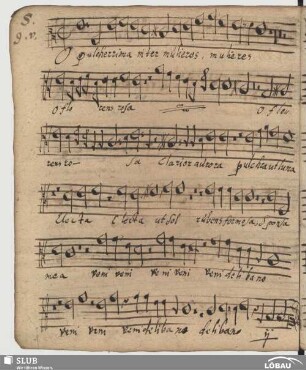 8.
9. v.
O pulcherrima inter mulieres, mulieres
O flo rens rosa O flo
rens ro sa Clarior aurora pulchra ut luna
Electa Electa ut sol rubens formosa, sponsa
mea veni veni veni veni veni de libano
veni veni veni de libano de libano
SLUB
LÖBAU